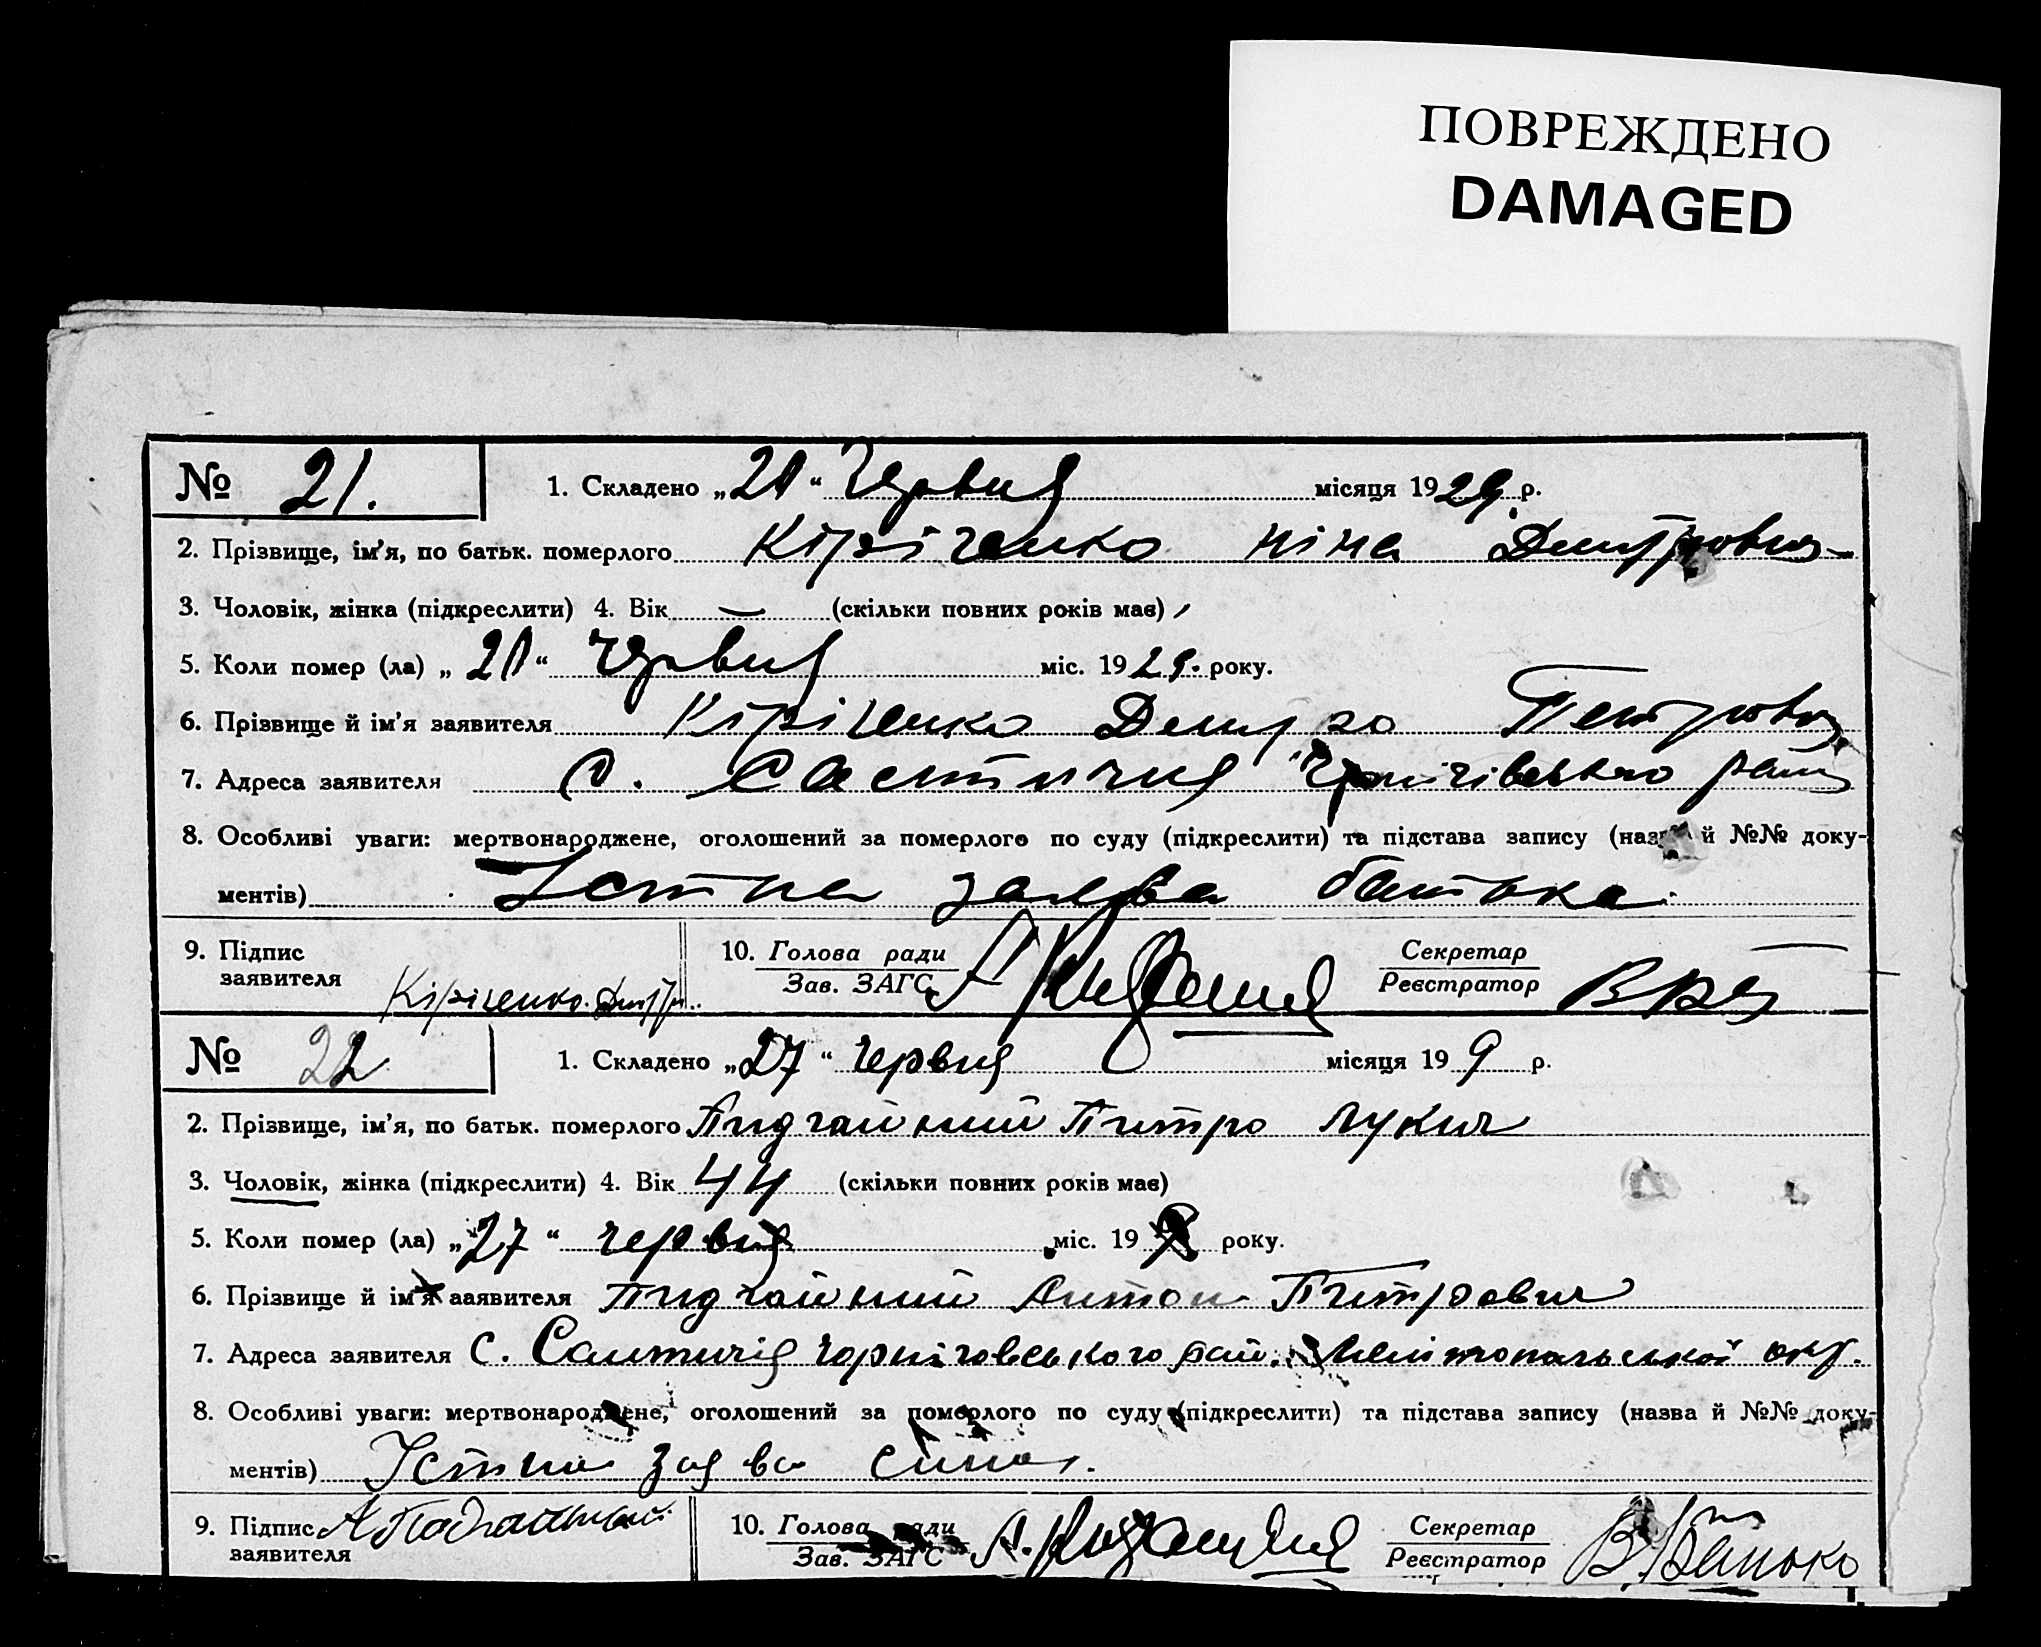 ПОВРЕЖДЕНО
DAMAGED
№ 21. 1. Складено „21“ Червня місяця 1929 р.
2. Прізвище, ім'я, по батьк. померлого Кіріченко Ніна
3. Чоловік, жінка (підкреслити) 4. Вік — (скільки повних років має)
5. Коли помер (ла) „21“ Червня міс. 1929. року.
6. Прізвище й ім'я заявителя Кіріченко
7. Адреса заявителя с.
8. Особливі уваги: мертвонароджене, оголошений за померлого по суду (підкреслити) та підстава запису (назва й №№ доку-
ментів) Устна батька.
9. Підпис заявителя Кіріченко 10. Голова ради Зав. ЗАГС Секретар Реєстратор
№ 22 1. Складено „27“ червня місяця 19 9 р.
2. Прізвище, ім'я, по батьк. померлого Пидгайний Питро Лукич
3. Чоловік, жінка (підкреслити) 4. Вік 44 (скільки повних років має)
5. Коли помер (ла) „27“ червня міс. 19 року.
6. Прізвище й ім'я заявителя Пидгайний Антон Питрович
7. Адреса заявителя с. рай. окр.
8. Особливі уваги: мертвонароджене, оголошений за померлого по суду (підкреслити) та підстава запису (назва й №№ доку-
ментів) Устна заява сина.
9. Підпис заявителя 10. Голова ради Зав. ЗАГС Секретар Реєстратор